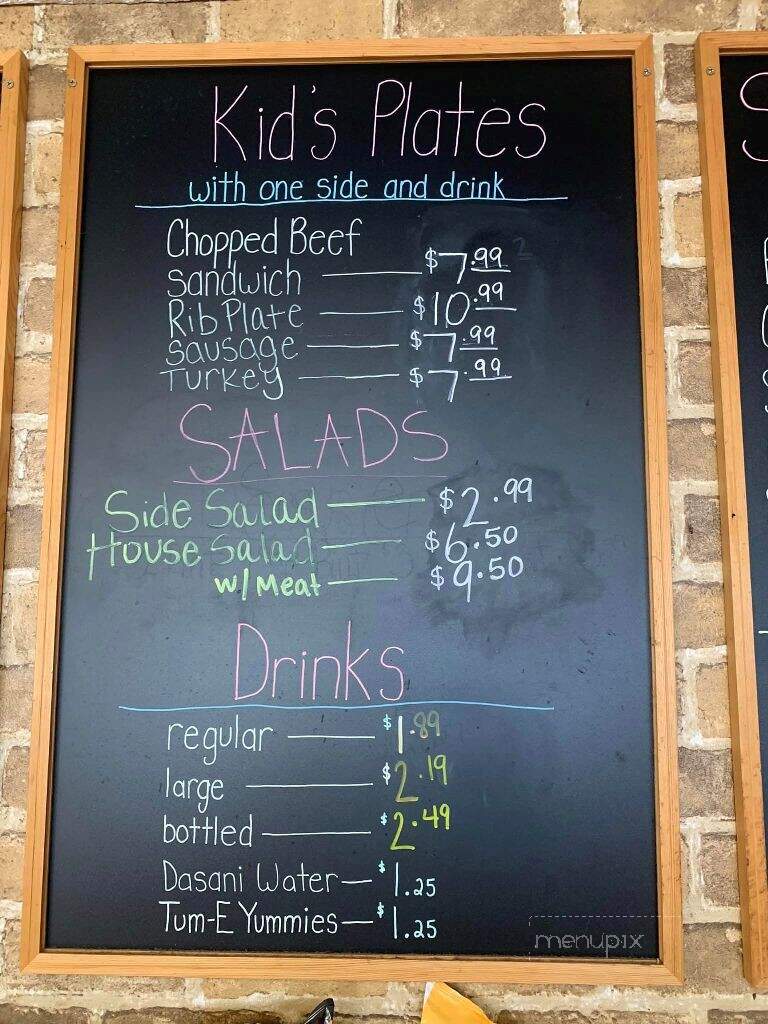 Kid's Plates
with one side and drink
Chopped Beef
Sandwich $7.99
Rib Plate $10.99
Sausage $7.99
Turkey $7.99
SALADS
Side Salad $2.99
House Salad $6.50
w/ Meat $9.50
Drinks
regular $1.89
large $2.19
bottled $2.49
Dasani Water $1.25
Tum-E Yummies $1.25
menupix